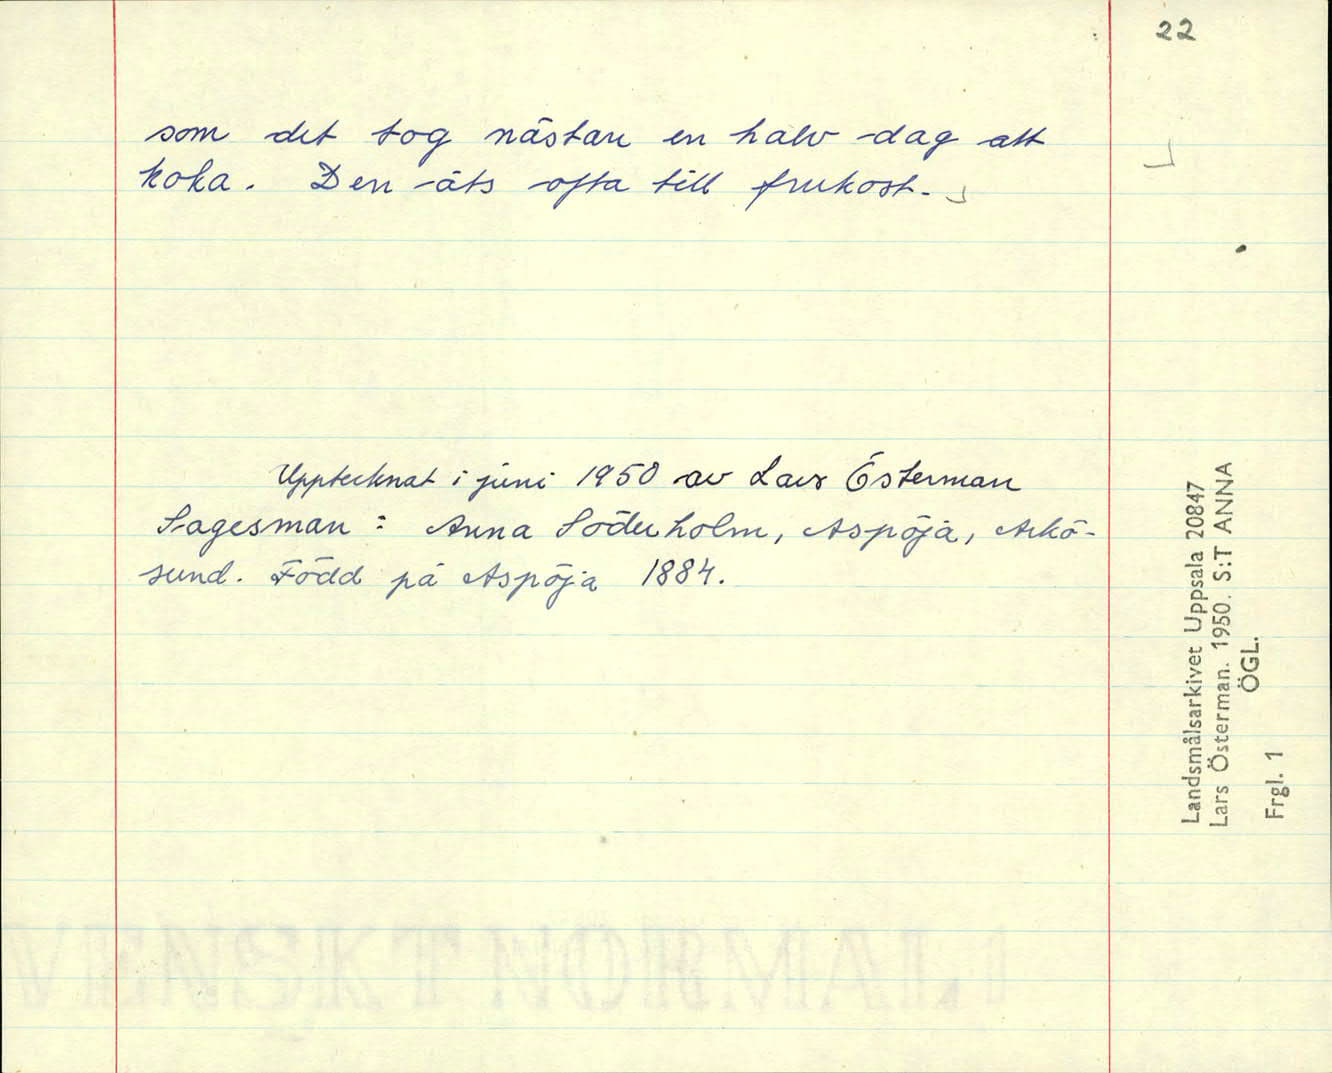 22
som det tog nästan en halv dag att
koka. Den åts ofta till frukost.
Upptecknat i juni 1950 av Lars Österman
Sagesman: Anna Söderholm, Aspöja, Arkö-
sund. Född på Aspöja 1884.
Landsmålsarkivet Uppsala 20847
Lars Österman. 1950. S:T ANNA
ÖGL.
Frgl. 1